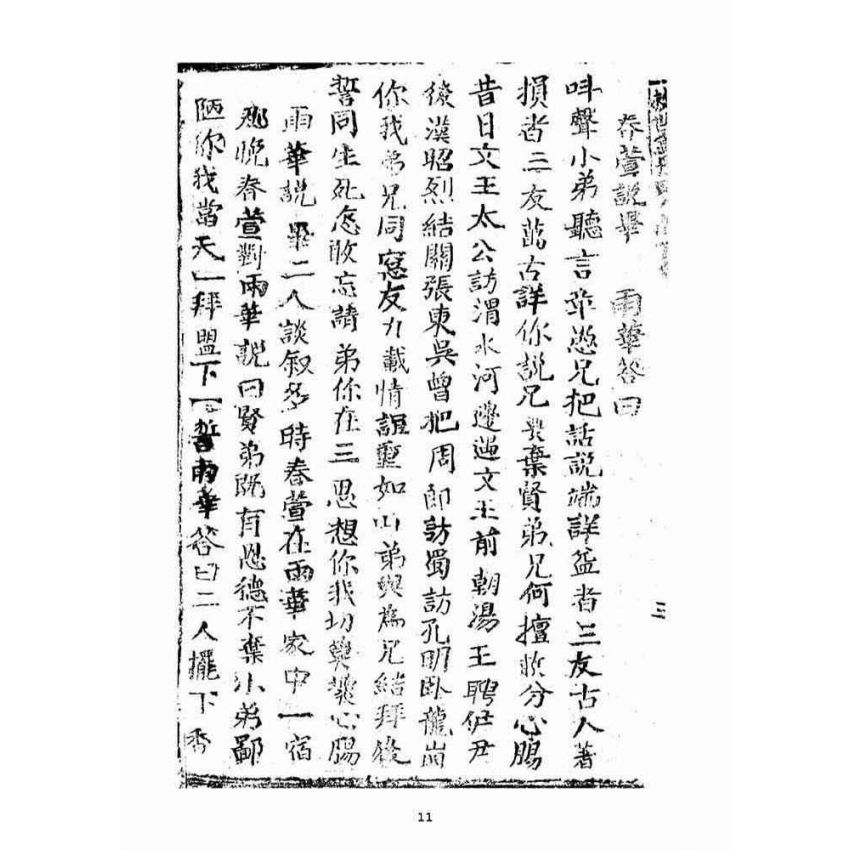 春萱說畢 雨華答曰
叫聲小弟聽言章愚兄把話說端詳益者三友古人著
損者三友萬古詳你說兄要棄賢弟兄何擅敢分心腸
昔日文王太公訪渭水河邊遇文王前朝湯王聘伊尹
後漢昭烈結關張東吳曾把周郎訪蜀訪孔明臥龍崗
你我弟兄同窓友九載情誼重如山弟與為兄結拜後
誓同生死怎敢忘請弟你在三思想你我切莫變心腸
雨華說畢二人談敘多時春萱在雨華家中一宿
那晚春萱對雨華說曰賢弟既有恩德不棄小弟鄙
陋你我當天一拜盟下一誓雨華答曰二人擺下香
三
11